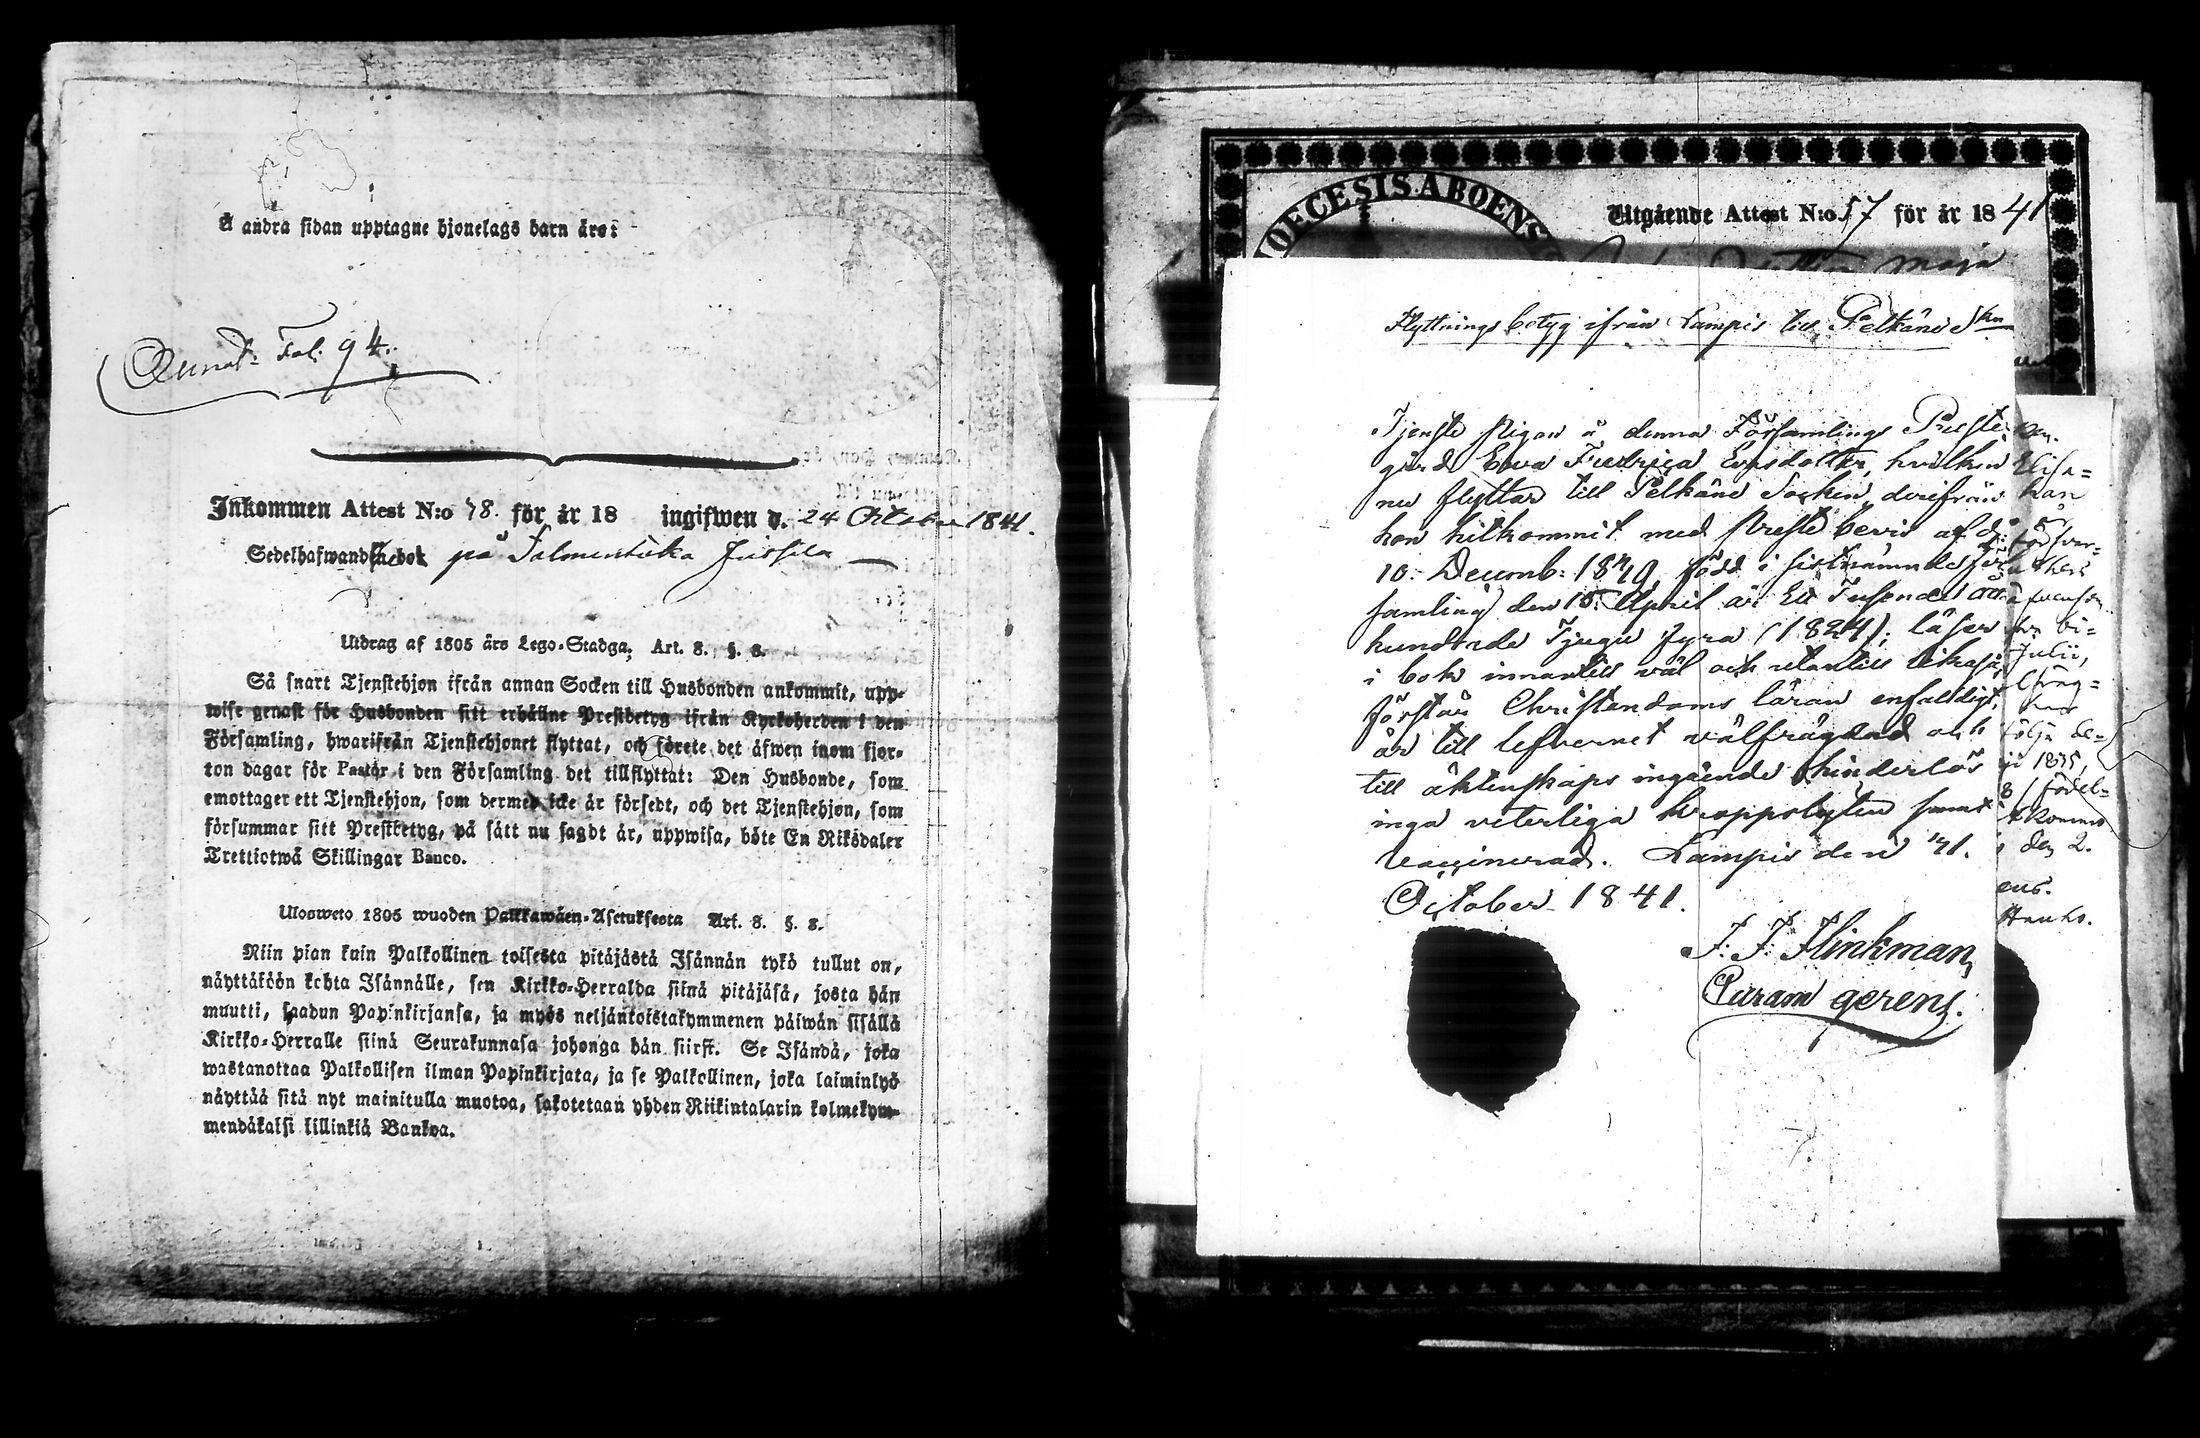 å andra sidan upptagne hjonelags barn äro:
Annot: Fol. 94.
Inkommen Attest N:o 78. för år 18 ingifwen d. 24 October 1841.
Sedelhafwand bok på Salmentaka Jussila
Utdrag af 1805 års Lego-Stadga, Art. 8. §. 8.
Så snart Tjenstehjon ifrån annan Socken till Husbonden ankommit, upp-
wise genast för Husbonden sitt erhållne Prestbetyg ifrån Kyrkoherden i den
Församling, hwarifrån Tjenstehjonet flyttat, och förete det äfwen inom fjor-
ton dagar för Pastor i den Församling det tillflyttat: Den Husbonde, som
emottager ett Tjenstehjon, som dermed icke är försedt, och det Tjenstehjon, som
försummar sitt Prestbetyg, på sätt nu sagdt är, uppwisa, böte En Riksdaler
Trettiotwå Skillingar Banco.
Ulosweto 1805 wuoden Palkkawäen-Asetuksesta Art. 8. §. 8.
Niin pian kuin Palkollinen toisesta pitäjästä Isännän tykö tullut on,
näyttäköön kohta Isännälle, sen Kirkko-Herralda siinä pitäjäsä, josta hän
muutti, saadun Papinkirjansa, ja myös neljäntoistakymmenen päiwän sisällä
Kirkko-Herralle siinä Seurakunnasa johonga hän siirst. Se Isändä, joka
wastanottaa Palkollisen ilman Papinkirjata, ja se Palkollinen, joka laiminlyö
näyttää sitä nyt mainitulla muotoa, sakotetaan yhden Riikintalarin kolmekym-
mendäkaksi killinkiä Bankoa.
DIOECESIS ABOENS
Utgående Attest N:o 57 för år 1841
Maja
Flyttnings betyg ifrån Lampis till Pelkäne Skn
Tjenste pigan å denna Församlings Preste
gård Ewa Fredrica Ersdotter, hvilken
nu flyttar till Pelkäne Socken, derifrån
hon hitkommit med Preste bevis af d:
10. Decemb: 1840, född i sistnämnde för
samling den 15. April år Ett Tusende Åtta
hundrade Tjugu fyra (1824); läser
i bok innantill väl och utantill likaså,
förstår Christendoms läran enfaldigt,
är till lefvernet välfrägdad och
till äktenskaps ingående hinderlös
inga veterliga kroppslyten samt
vaccinerad. Lampis den 11.
October 1841.
J: F: Flinkman,
Curam gerens.
Elisa=
han
är
Julii,
följa de=
1835,
8 (födel=
den 2.